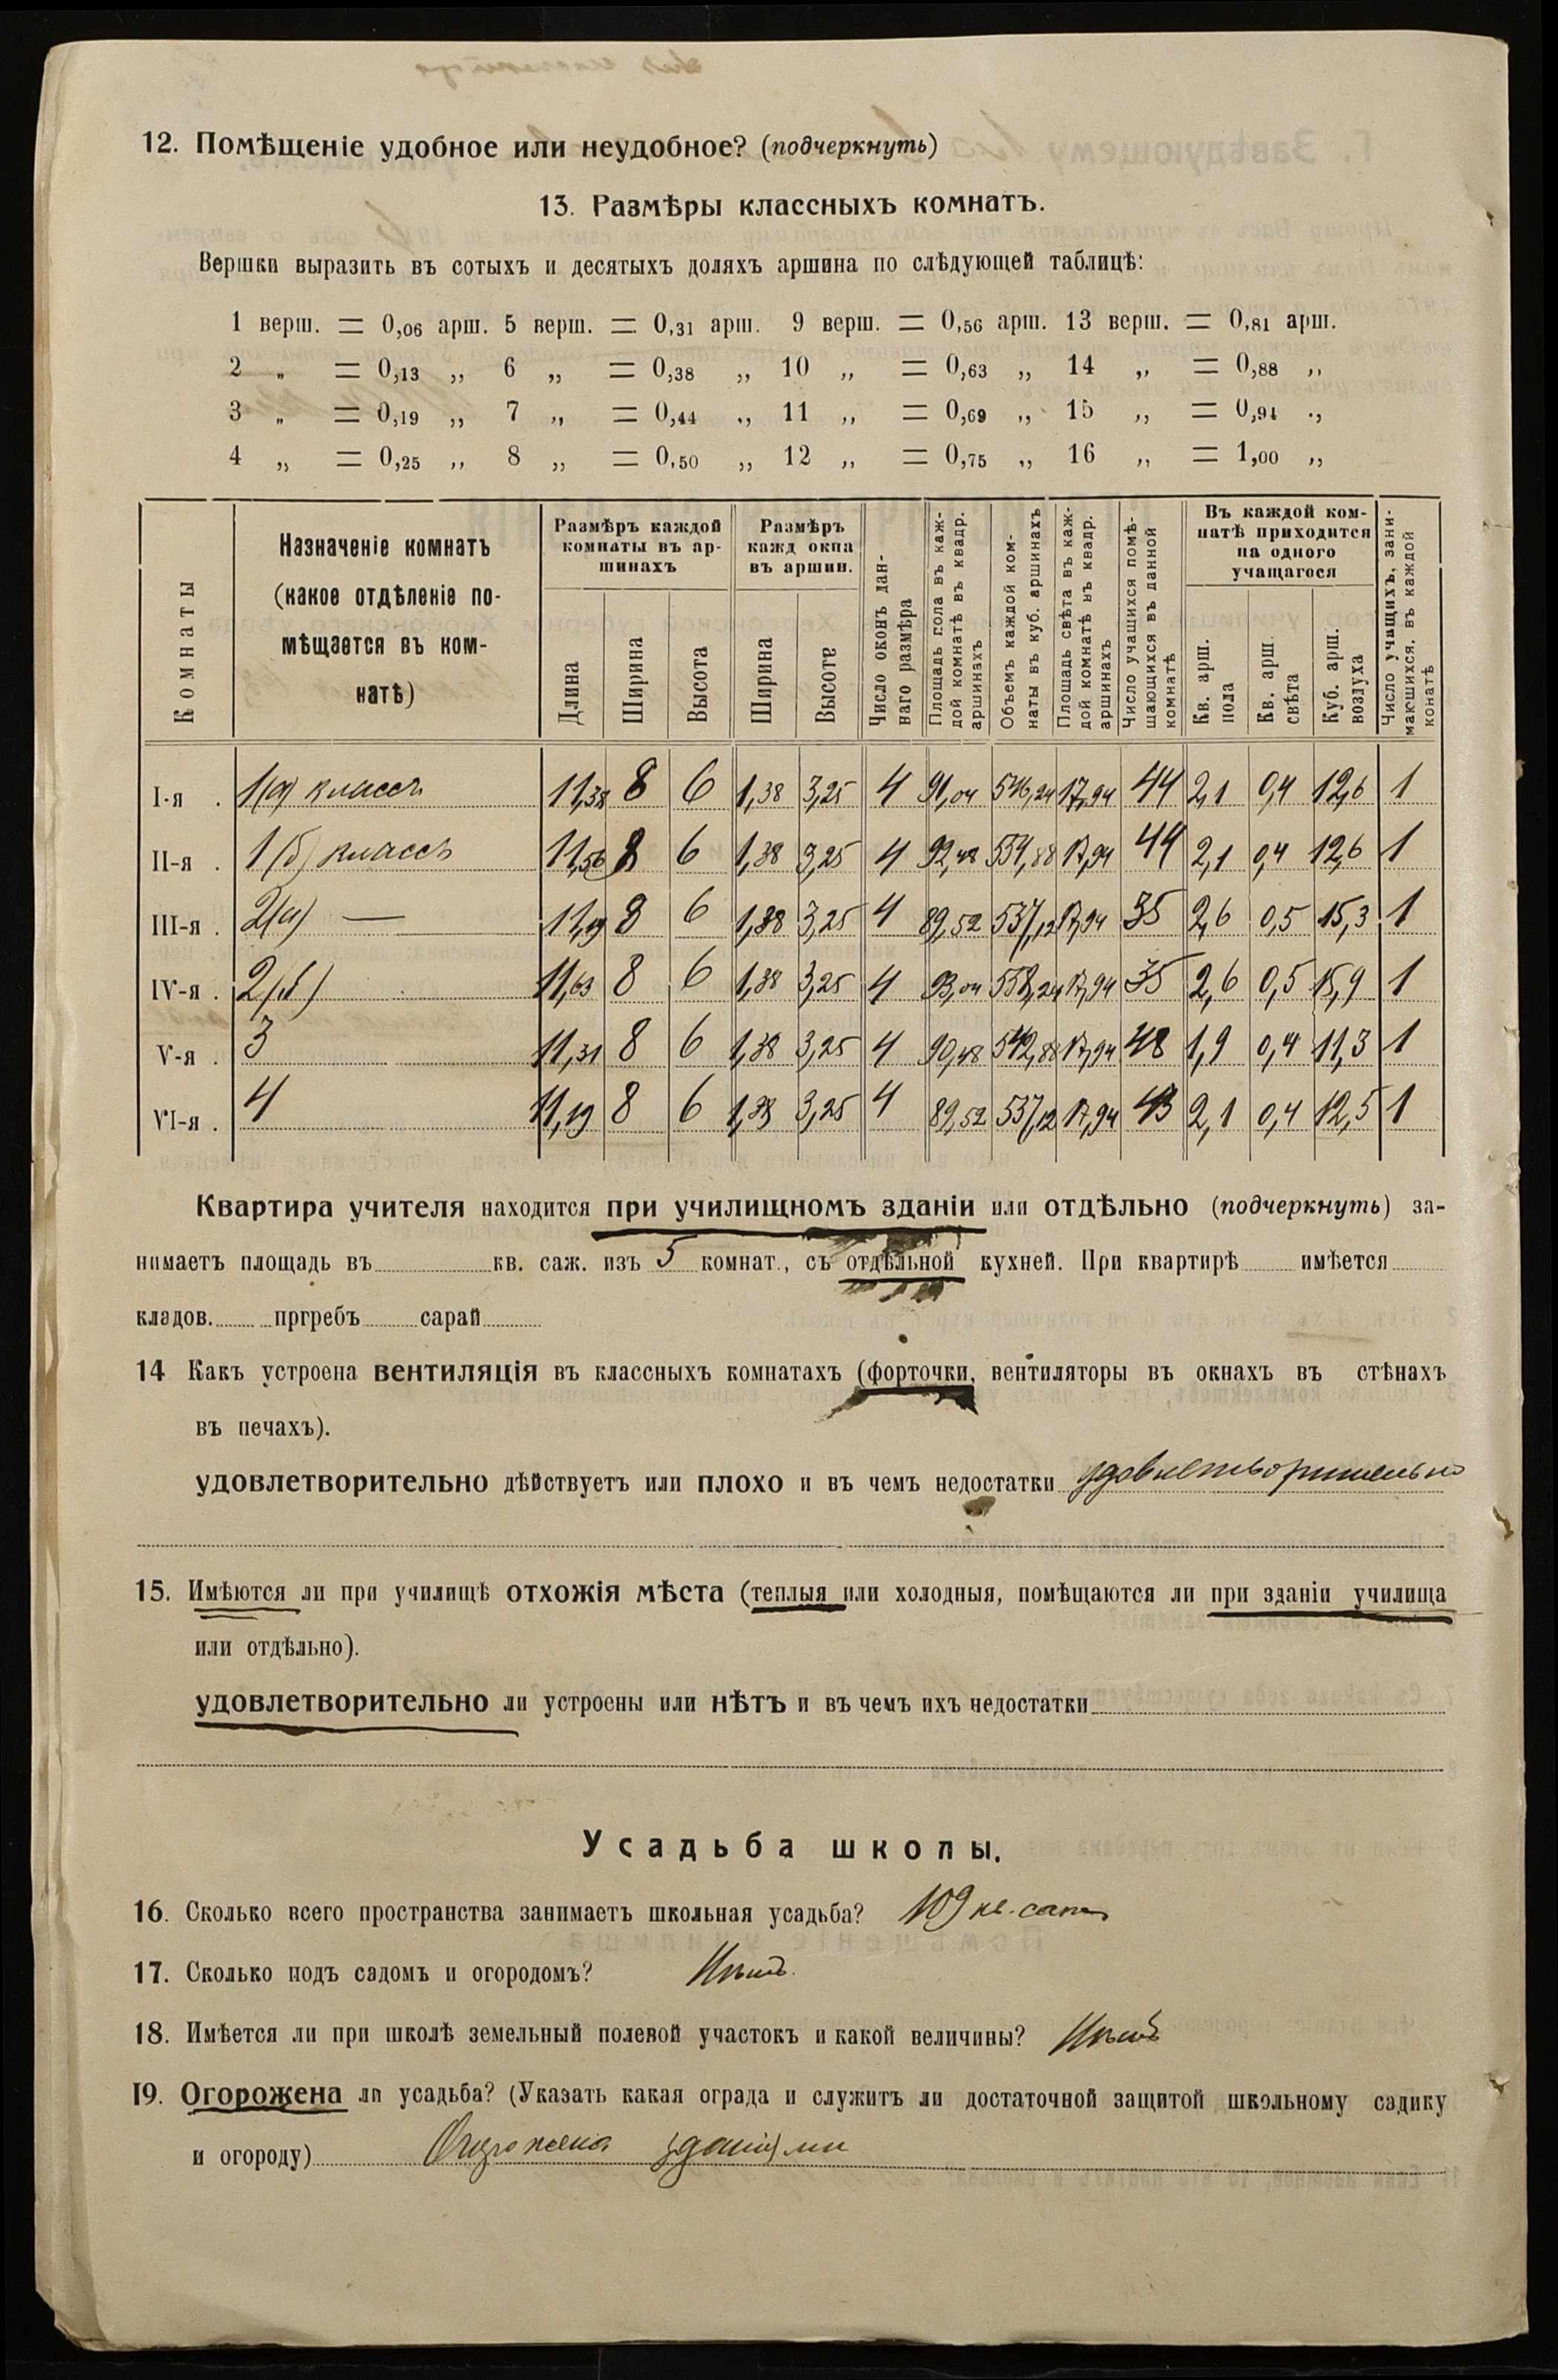 12. Помѣщеніе удобное или неудобное? (подчеркнуть)
13. Размѣры классныхъ комнатъ.
Вершки выразить въ сотыхъ и десятыхъ доляхъ аршина по слѣдующей таблицѣ:
1 верш. = 0,06 арш. 5 верш. = 0,31 арш. 9 верш. = 0,56 арш. 13 верш. = 0,81 арш.
2 „ = 0,13 „ 6 „ = 0,38 „ 10 „ = 0,63 „ 14 „ = 0,88 „
3 „ = 0,19 „ 7 „ = 0,44 „ 11 „ = 0,69 „ 15 „ = 0,94 „
4 „ = 0,25 „ 8 „ = 0,50 „ 12 „ = 0,75 „ 16 „ = 1,00 „
Комнаты
Назначеніе комнатъ
(какое отдѣленіе по-
мѣщается въ ком-
натѣ)
Размѣръ каждой
комнаты въ ар-
шинахъ
Длина
Ширина
Высота
Размѣръ
кажд окна
въ аршин.
Ширина
Высота
Число оконъ дан-
наго размѣра
Площадь пола въ каж-
дой комнатѣ въ квадр.
аршинахъ
Объемъ каждой ком-
наты въ куб. аршинахъ
Площадь свѣта въ каж-
дой комнатѣ въ квадр.
аршинахъ
Число учащихся помѣ-
щающихся въ данной
комнатѣ
Въ каждой ком-
натѣ приходится
на одного
учащагося
Кв. арш.
пола
Кв. арш.
свѣта
Куб. арш.
воздуха
Число учащихъ, зани-
мающихся, въ каждой
конатѣ
I-я . 1(а) классъ 11,38 8 6 1,38 3,25 4 91,04 546,24 17,94 44 2,1 0,4 12,6 1
II-я . 1(б) классъ 11,56 8 6 1,38 3,25 4 92,48 554,88 17,94 44 2,1 0,4 12,6 1
III-я . 2(а) — 11,19 8 6 1,38 3,25 4 89,52 537,12 17,94 35 2,6 0,5 15,3 1
IV-я . 2(б) 11,63 8 6 1,38 3,25 4 93,04 558,24 17,94 35 2,6 0,5 15,9 1
V-я . 3 11,31 8 6 1,38 3,25 4 90,48 542,88 17,94 48 1,9 0,4 11,3 1
VI-я . 4 11,19 8 6 1,38 3,25 4 89,52 537,12 17,94 43 2,1 0,4 12,5 1
Квартира учителя находится при училищномъ зданіи или отдѣльно (подчеркнуть) за-
нимаетъ площадь въ кв. саж. изъ 5 комнат., съ отдѣльной кухней. При квартирѣ имѣется
кладов. пргребъ сарай
14 Какъ устроена вентиляція въ классныхъ комнатахъ (форточки, вентиляторы въ окнахъ въ стѣнахъ
въ печахъ).
удовлетворительно дѣйствуетъ или плохо и въ чемъ недостатки удовлетворительно
15. Имѣются ли при училищѣ отхожія мѣста (теплыя или холодныя, помѣщаются ли при зданіи училища
или отдѣльно).
удовлетворительно ли устроены или нѣтъ и въ чемъ ихъ недостатки
Усадьба школы.
16. Сколько всего пространства занимаетъ школьная усадьба? 109 кв. саж.
17. Сколько подъ садомъ и огородомъ? Нѣтъ.
18. Имѣется ли при школѣ земельный полевой участокъ и какой величины? Нѣтъ
19. Огорожена ли усадьба? (Указать какая ограда и служитъ ли достаточной защитой школьному садику
и огороду) Огорожена зданіями